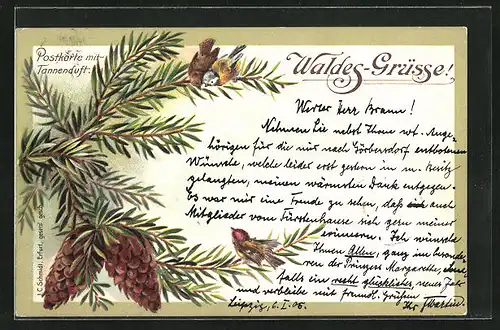 Postkarte mit
Tannenduft.
Waldes-Grüsse!
Werter Herr Braun!
Nehmen Sie nebst Ihren w. Ange-
hörigen für die mir nach Görbersdorf entbotenen
Wünsche, welche leider erst gestern in m. Besitz
gelangten, meinen wärmsten Dank entgegen.
Es war mir eine Freude zu sehen, daß auch
Mitglieder vom Fürstenhause sich gern meiner
erinneren. Ich wünsche
Ihnen Allen, ganz im besonde-
ren der Prinzess Margarethe, eben-
falls ein recht glückliches neues Jahr
und verbleibe mit freundl. Grüßen
Leipzig, 6. I. 05. Ihr Martin.
J. C. Schmidt, Erfurt, gesetzl. gesch.